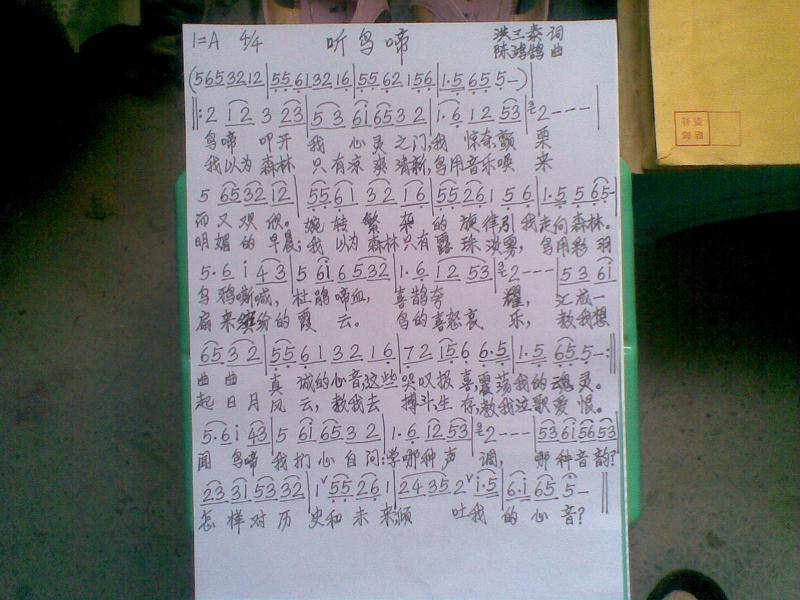 1=A 4/4 听鸟啼 洪三泰 词
陈鸿鹄 曲
(5653212|55613216|5562156|1·5655-)|
||:2 12 3 23|5 3 616532|1·6 12 53|2---|
鸟啼 叩开 我 心灵之门,我 惊奇颤 栗
我以为 森林 只有凉爽清新,鸟用音乐唤 来
5 6532 12|5561 32 16|55261 56|1·5 565-|
而又欢欣。婉转繁 的旋律引我走向森林。
明媚的早晨;我以为森林只有露珠 雾,鸟用彩羽
5·6 i 43|5 6i 6 532|1·6 12 53|2---|5 3 6i|
乌鸦嘶喊,杜鹃啼血,喜鹊夸 耀,汇成一
扇来缤纷的霞 云。 鸟的喜怒哀 乐,教我想
65 32|5561 32 16|72156 6·5|1·5 655-:||
曲曲 真诚的心音,这些哭叹报喜震荡我的魂灵。
起日月风云,教我去 搏斗生存,教我泣歌爱恨。
5·6 i 43|5 6i65 3 2|1·6 12 53|2---|53 6i 56 53|
闻 鸟啼 我扪心自问:学哪种声 调, 哪种音韵?
23 31 53 32|1 55 26 1|24 35 2 i·5|6·i 65 5-||
怎样对历 史和未来,倾 吐我的心音?